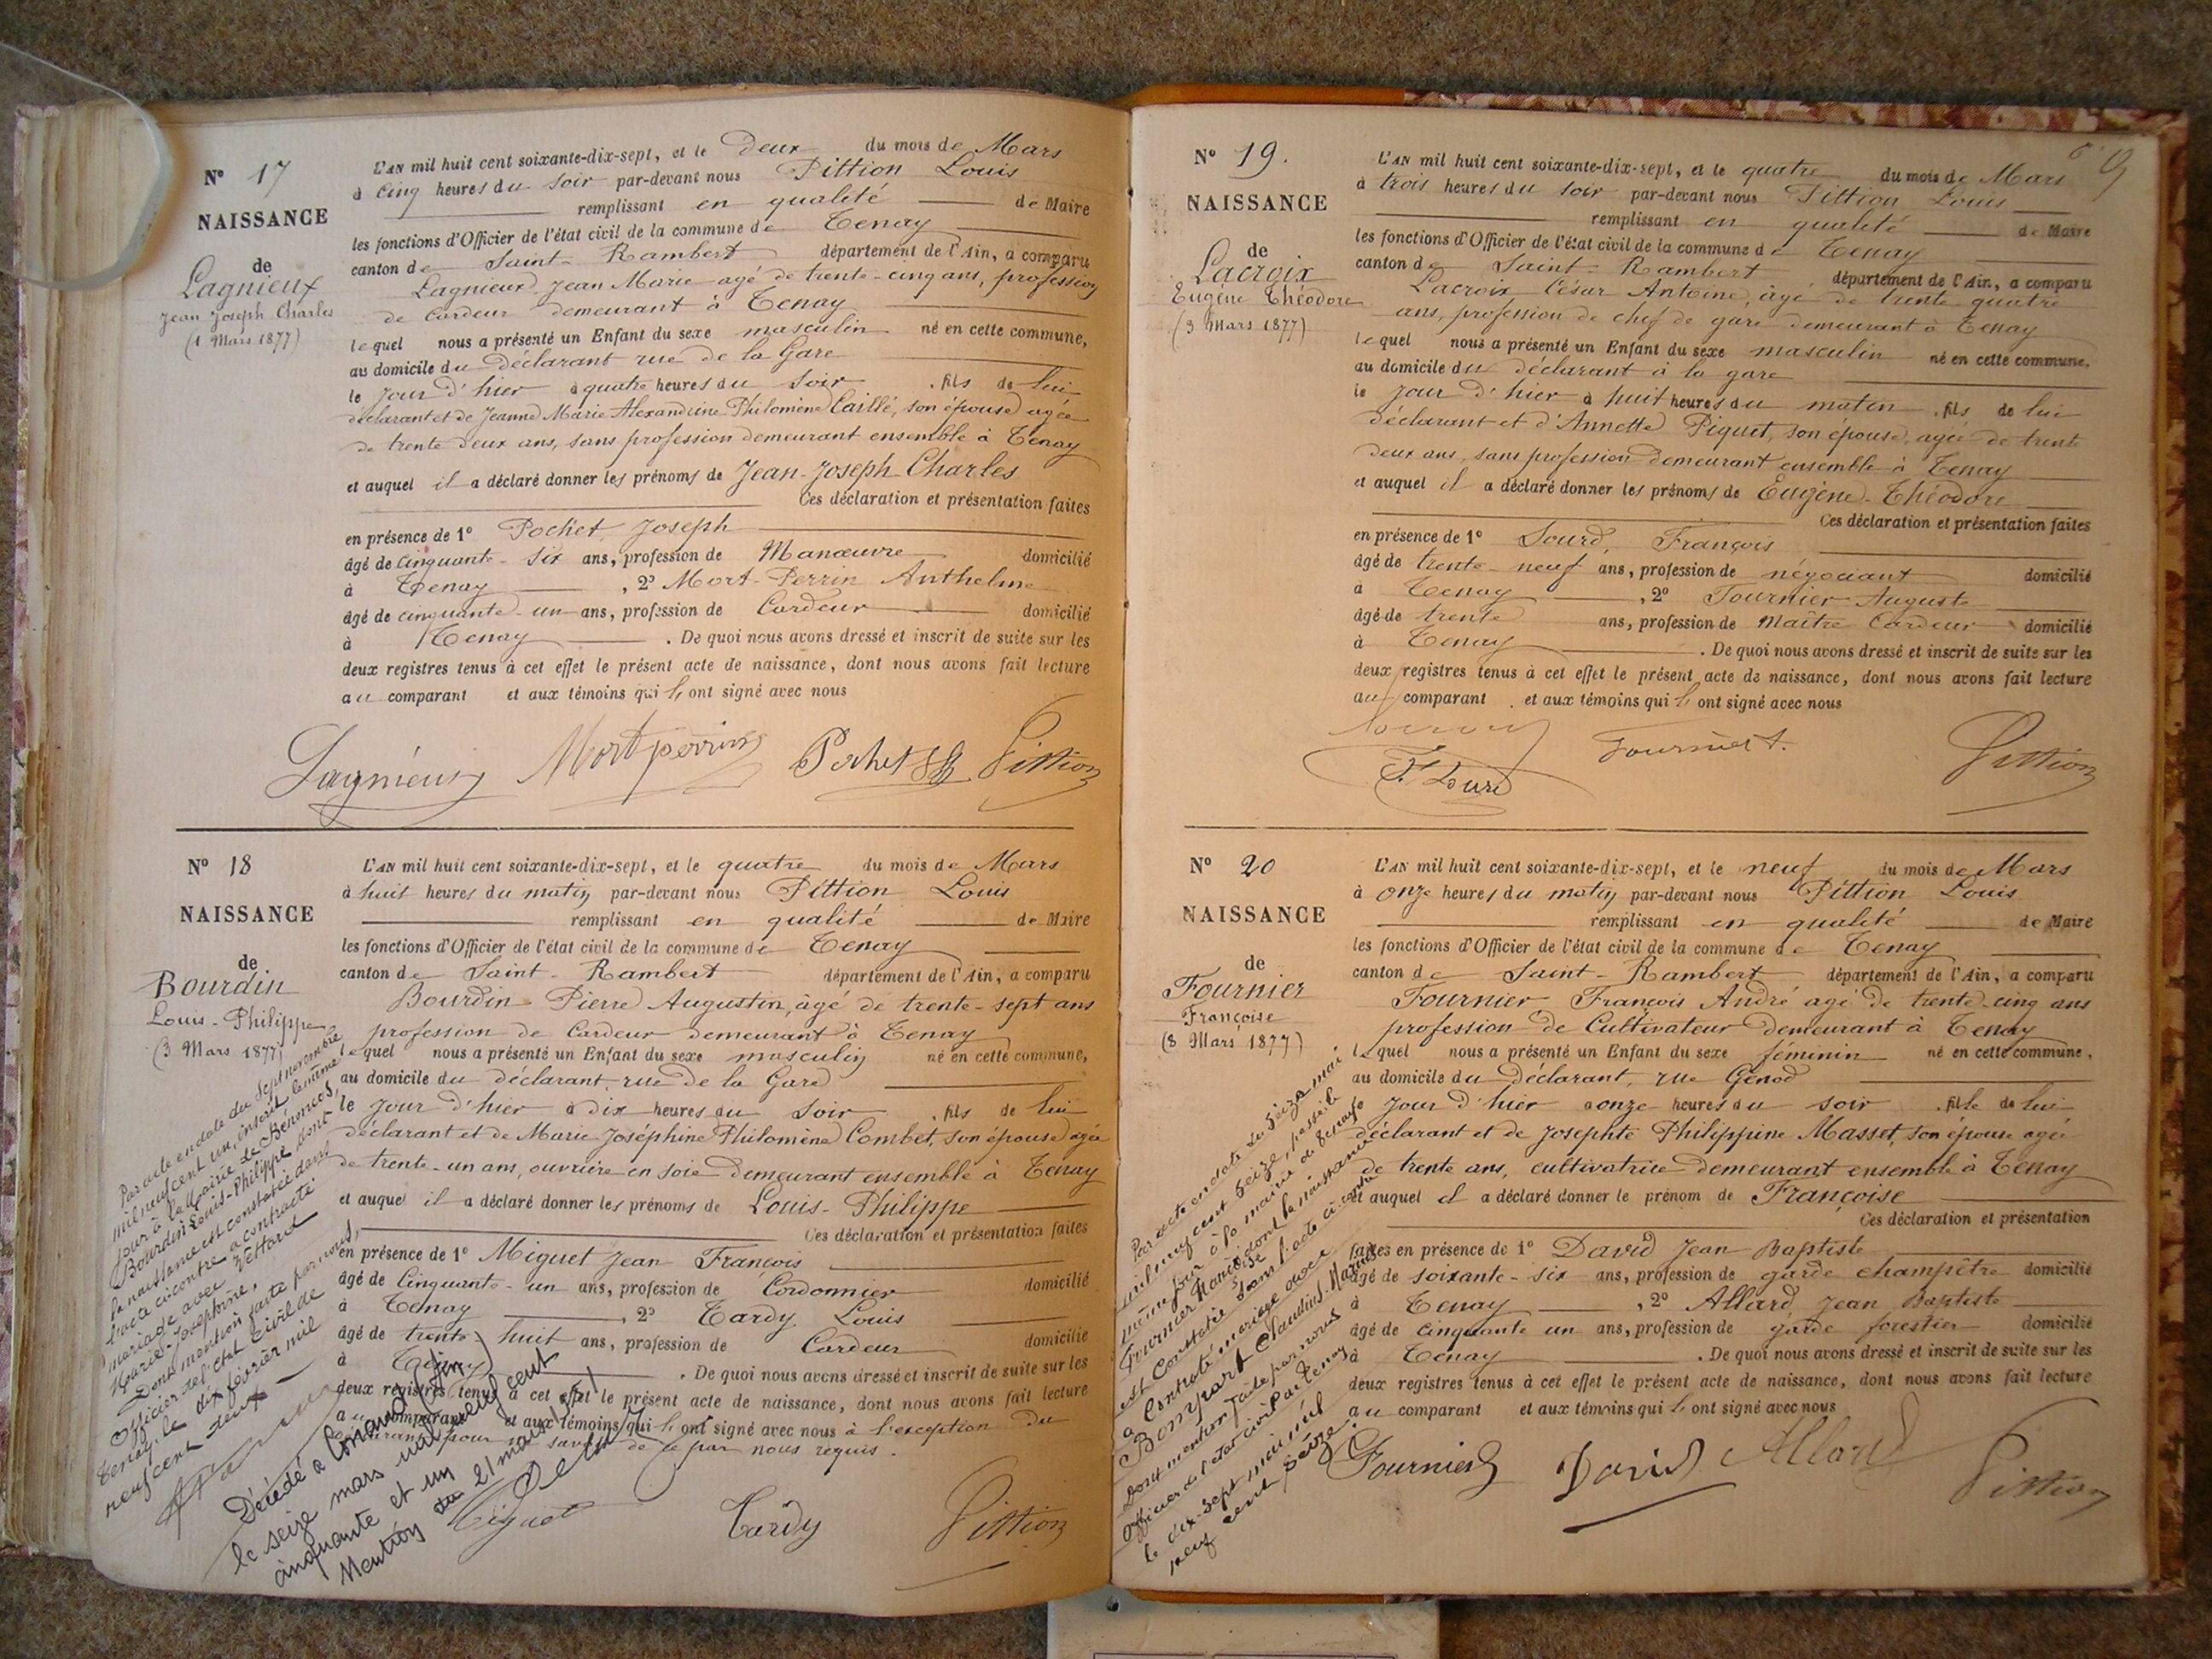 N° 17
NAISSANCE
de
Lagnieux
Jean Joseph Charles
(1 Mars 1877)
L'AN mil huit cent soixante-dix-sept, et le deux du mois de Mars
à cinq heures du soir par-devant nous Pittion Louis
remplissant en qualité de Maire
les fonctions d'Officier de l'état civil de la commune de Tenay
canton de Saint-Rambert département de l'Ain, a comparu
Lagnieux Jean Marie agé de trente-cinq ans, profession
de Cardeur demeurant à Tenay
lequel nous a présenté un Enfant du sexe masculin né en cette commune,
au domicile du déclarant rue de la Gare
le jour d'hier à quatre heures du soir, fils de lui
déclarant et de Jeanne Marie Alexandrine Philomène Caillé, son épouse agée
de trente deux ans, sans profession demeurant ensemble à Tenay
et auquel il a déclaré donner les prénoms de Jean-Joseph-Charles
Ces déclaration et présentation faites
en présence de 1° Pochet Joseph
âgé de cinquante-six ans, profession de Manœuvre domicilié
à Tenay, 2° Mort-Perrin Anthelme
âgé de cinquante-un ans, profession de Cardeur domicilié
à Tenay. De quoi nous avons dressé et inscrit de suite sur les
deux registres tenus à cet effet le présent acte de naissance, dont nous avons fait lecture
au comparant et aux témoins qui l'ont signé avec nous
Lagnieux Mortperrin Pochet Pittion
N° 18
NAISSANCE
de
Bourdin
Louis-Philippe
(3 Mars 1877)
L'AN mil huit cent soixante-dix-sept, et le quatre du mois de Mars
à huit heures du matin par-devant nous Pittion Louis
remplissant en qualité de Maire
les fonctions d'Officier de l'état civil de la commune de Tenay
canton de Saint-Rambert département de l'Ain, a comparu
Bourdin Pierre Augustin, âgé de trente-sept ans
profession de Cardeur demeurant à Tenay
lequel nous a présenté un Enfant du sexe masculin né en cette commune,
au domicile du déclarant, rue de la Gare
le jour d'hier à dix heures du soir, fils de lui
déclarant et de Marie Joséphine Philomène Combet, son épouse agée
de trente-un ans, ouvrière en soie demeurant ensemble à Tenay
et auquel il a déclaré donner les prénoms de Louis-Philippe
Ces déclaration et présentation faites
en présence de 1° Miguet Jean François
âgé de Cinquante-un ans, profession de Cordonnier domicilié
à Tenay, 2° Tardy Louis
âgé de trente huit ans, profession de Cardeur domicilié
à Tenay. De quoi nous avons dressé et inscrit de suite sur les
deux registres tenus à cet effet le présent acte de naissance, dont nous avons fait lecture
au comparant et aux témoins qui l'ont signé avec nous à l'exception du
déclarant pour ne savoir de ce par nous requis.
Miguet Tardy Pittion
Par acte en date du sept novembre
mil neuf cent un, inscrit le même
jour à la Mairie de Bénonces,
Bourdin Louis-Philippe dont
la naissance est constatée dans
l'acte ci contre a contracté
mariage avec Vettard
Marie-Josephine,
Dont mention faite par nous,
Officier de l'état civil de
Tenay, le dix février mil
neuf cent deux
Décédé à Conand (Ain)
le seize mars mil neuf cent
cinquante et un
Mention du 21 mars 1951
N° 19.
NAISSANCE
de
Lacroix
Eugène Théodore
(3 Mars 1877)
9
L'AN mil huit cent soixante-dix-sept, et le quatre du mois de Mars
à trois heures du soir par-devant nous Pittion Louis
remplissant en qualité de Maire
les fonctions d'Officier de l'état civil de la commune de Tenay
canton de Saint-Rambert département de l'Ain, a comparu
Lacroix César Antoine, âgé de trente quatre
ans, profession de chef de gare demeurant à Tenay
lequel nous a présenté un Enfant du sexe masculin né en cette commune,
au domicile du déclarant à la gare
le jour d'hier à huit heures du matin, fils de lui
déclarant et d'Annette Piquet, son épouse, agée de trente
deux ans, sans profession demeurant ensemble à Tenay
et auquel il a déclaré donner les prénoms de Eugène-Théodore
Ces déclaration et présentation faites
en présence de 1° Sourd, François
âgé de trente-neuf ans, profession de négociant domicilié
à Tenay, 2° Fournier Auguste
âgé de trente ans, profession de Maître Cardeur domicilié
à Tenay. De quoi nous avons dressé et inscrit de suite sur les
deux registres tenus à cet effet le présent acte de naissance, dont nous avons fait lecture
au comparant et aux témoins qui l'ont signé avec nous
F. Sourd Fournier A. Pittion
N° 20
NAISSANCE
de
Fournier
Françoise
(8 Mars 1877)
L'AN mil huit cent soixante-dix-sept, et le neuf du mois de Mars
à onze heures du matin par-devant nous Pittion Louis
remplissant en qualité de Maire
les fonctions d'Officier de l'état civil de la commune de Tenay
canton de Saint-Rambert département de l'Ain, a comparu
Fournier François André agé de trente-cinq ans
profession de Cultivateur demeurant à Tenay
lequel nous a présenté un Enfant du sexe féminin né en cette commune,
au domicile du déclarant, rue Génod
jour d'hier à onze heures du soir, fille de lui
déclarant et de Josephte Philippine Masset, son épouse agée
de trente ans, cultivatrice demeurant ensemble à Tenay
et auquel il a déclaré donner le prénom de Françoise
Ces déclaration et présentation
faites en présence de 1° David Jean Baptiste
âgé de soixante-six ans, profession de garde champêtre domicilié
à Tenay, 2° Allard Jean Baptiste
âgé de cinquante un ans, profession de garde forestier domicilié
à Tenay. De quoi nous avons dressé et inscrit de suite sur les
deux registres tenus à cet effet le présent acte de naissance, dont nous avons fait lecture
au comparant et aux témoins qui l'ont signé avec nous
Fournier David Allard Pittion
Par acte en date du seize mai
mil neuf cent seize, passé le
même jour à la mairie de Tenay
Fournier dont la naissance
est constatée dans l'acte ci contre
a contracté mariage avec
Bompart Claudius
Dont mention faite par nous
Officier de l'état civil de Tenay
le dix-sept mai mil
neuf cent seize.